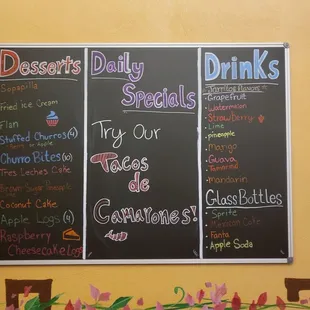 Desserts
Sopapilla
Fried Ice Cream
Flan
Stuffed Churros (4)
Churro Bites (10)
Tres Leches Cake
Brown Sugar
Coconut Cake
Apple Logs (4)
Raspberry
Cheesecake Logs
Daily
Specials
Try Our
Tacos
de
Camarones!
Drinks
Jarritos Flavors
Grapefruit
Watermelon
Strawberry
Lime
pineapple
Mango
Guava
Tamarind
Mandarin
Glass Bottles
Sprite
Mexican Coke
Fanta
Apple Soda